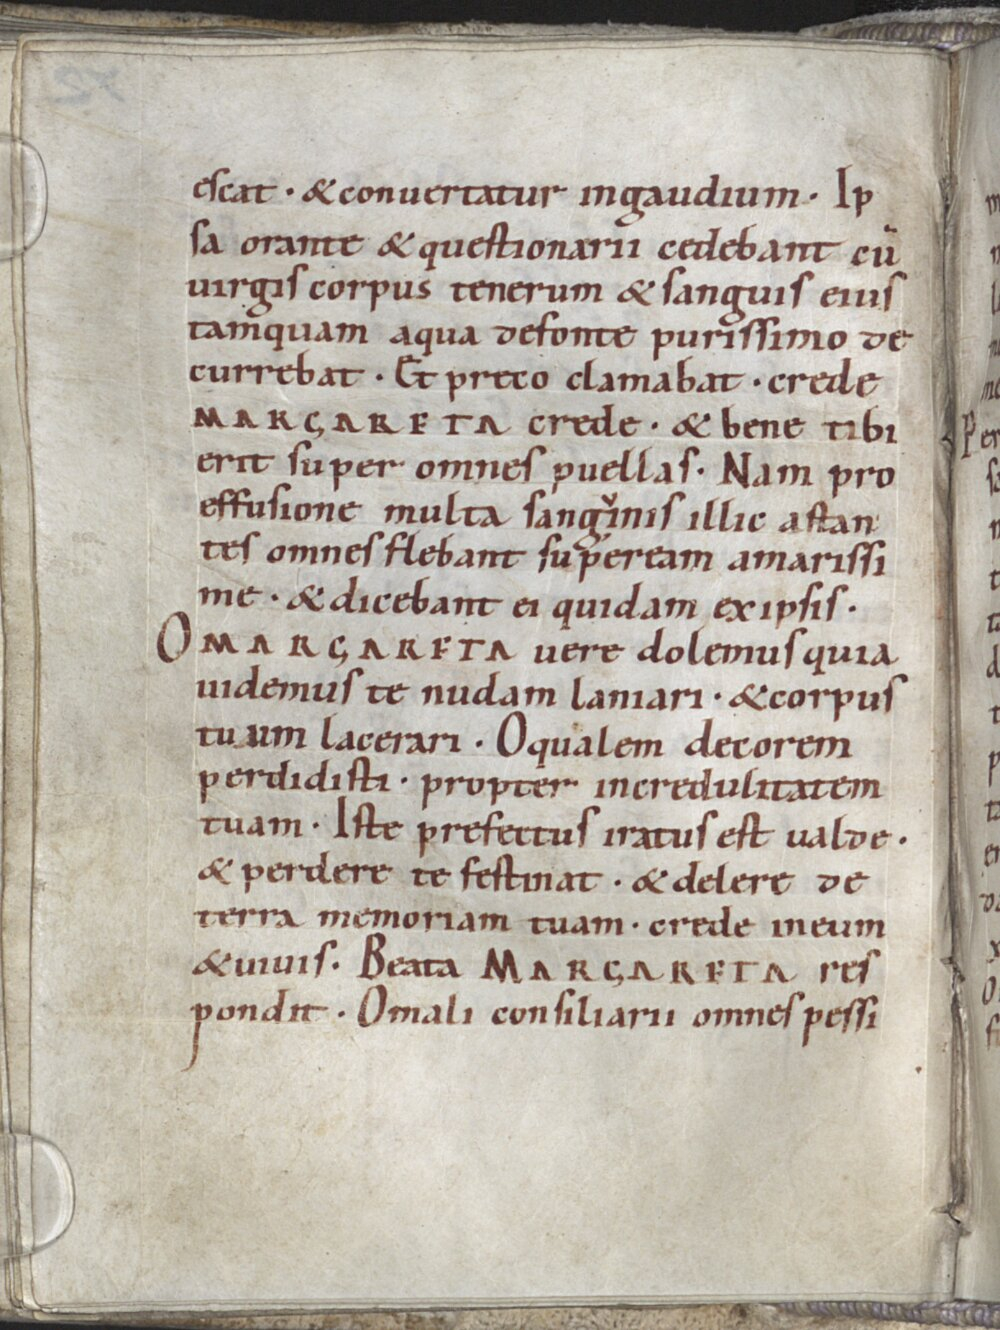 escat · & conuertatur in gaudium · Ip
sa orante & questionarii cedebant cū
uirgis corpus tenerum & sanguis eius
tamquam aqua de fonte purissimo de
currebat · Et preco clamabat · crede
MARGARETA crede · & bene tibi
erit super omnes puellas · Nam pro
effusione multa sanguinis illic astan
tes omnes flebant super eam amarissi
me · & dicebant ei quidam ex ipsis ·
O MARGARETA uere dolemus quia
uidemus te nudam laniari · & corpus
tuum lacerari · O qualem decorem
perdidisti · propter incredulitatem
tuam · Iste prefectus iratus est ualde ·
& perdere te festinat · & delere de
terra memoriam tuam · crede in eum
& uiuis · Beata MARGARETA res
pondit · O mali consiliarii omnes pessi